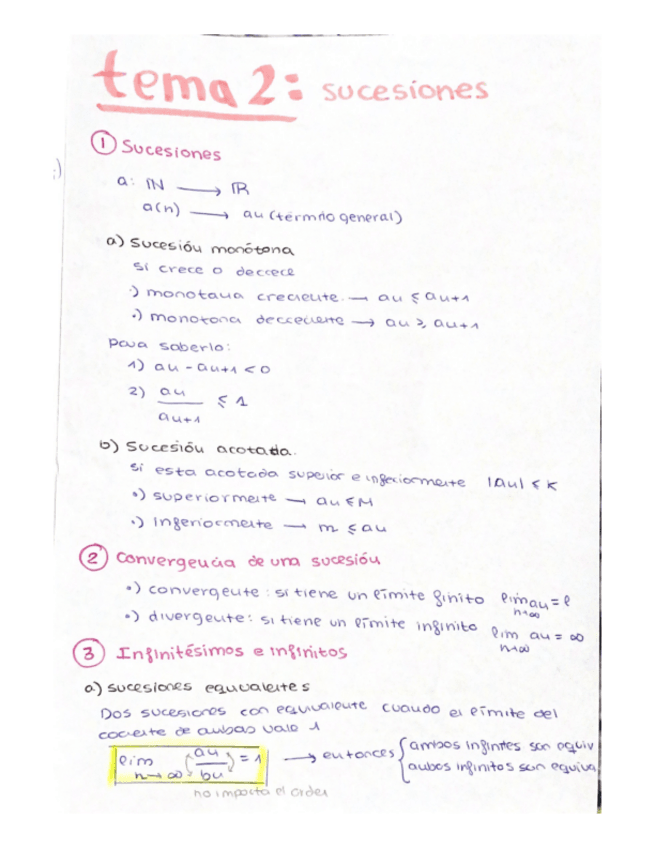 tema 2: sucesiones
① Sucesiones
a: ℕ → ℝ
a(n) → an (término general)
a) Sucesión monótona
si crece o decrece
·) monotona creciente → an ≤ an+1
·) monotona decreciente → an ≥ an+1
para saberlo:
1) an - an+1 < 0
2) an / an+1 ≤ 1
b) Sucesión acotada.
si esta acotada superior e inferiormente |an| ≤ K
·) superiormente → an ≤ M
·) Inferiormente → m ≤ an
② Convergencia de una sucesión
·) convergente: si tiene un límite finito lim n→∞ an = l
·) divergente: si tiene un límite infinito lim n→∞ an = ∞
③ Infinitésimos e infinitos
a) sucesiones equivalentes
Dos sucesiones son equivalente cuando el límite del
cociente de ambas vale 1
lim n→∞ (an / bn) = 1 → entonces { ambos infintes son equiv
ambos infinitos son equiva
no importa el orden